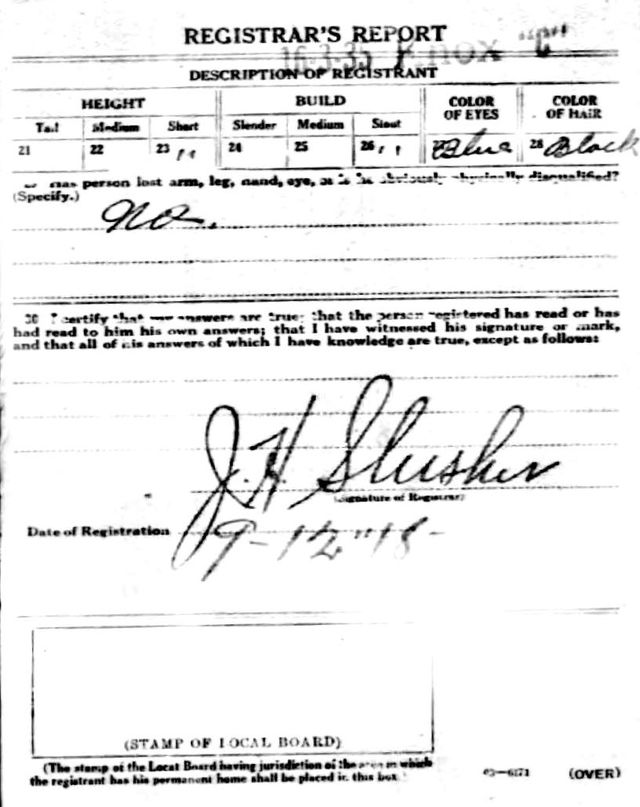 REGISTRAR'S REPORT
16-3-35 Knox "C"
DESCRIPTION OF REGISTRANT
HEIGHT BUILD COLOR OF EYES COLOR OF HAIR
Tall Medium Short Slender Medium Stout
21 22 23 " 24 25 26 " 27 Blue 28 Black
29 Has person lost arm, leg, hand, eye, or is he obviously physically disqualified?
(Specify.) No.
30 I certify that my answers are true; that the person registered has read or has
had read to him his own answers; that I have witnessed his signature or mark,
and that all of his answers of which I have knowledge are true, except as follows:
J. H. Slusher
(Signature of Registrar)
Date of Registration 9-12"18-
(STAMP OF LOCAL BOARD)
(The stamp of the Local Board having jurisdiction of the area in which
the registrant has his permanent home shall be placed in this box.)
03—6171 (OVER)